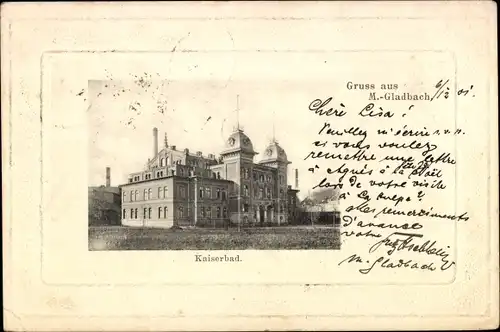 Gruss aus
M.-Gladbach,
6/12 01.
Chère Lisa!
Veuillez m'écrire
si vous voulez
remettre une lettre
à Agnès à la
lors de votre visite
à
mes remerciements
d'avance
votre
M. Gladbach
Kaiserbad.